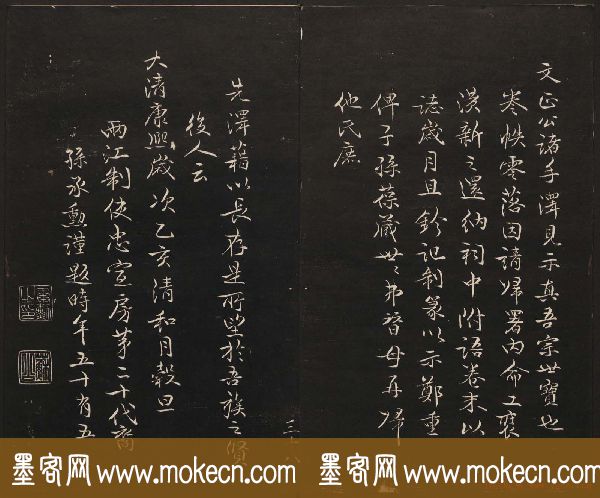 文正公諸手澤見示真吾宗世寶也
卷帙零落因請歸署內命工裝
潢新之還納祠中附語卷末以
誌歲月且鈐記制篆以示鄭重
俾子孫葆藏世〻弗替毋再歸
他氏庶
先澤藉以長存是所望於吾族之賢
後人云
大清康熙歲次乙亥清和月穀旦
兩江制使忠宣房第二十代裔
孫承勳謹題時年五十有五
三十八
墨客网 www.mokecn.com
墨客网 www.mokecn.com